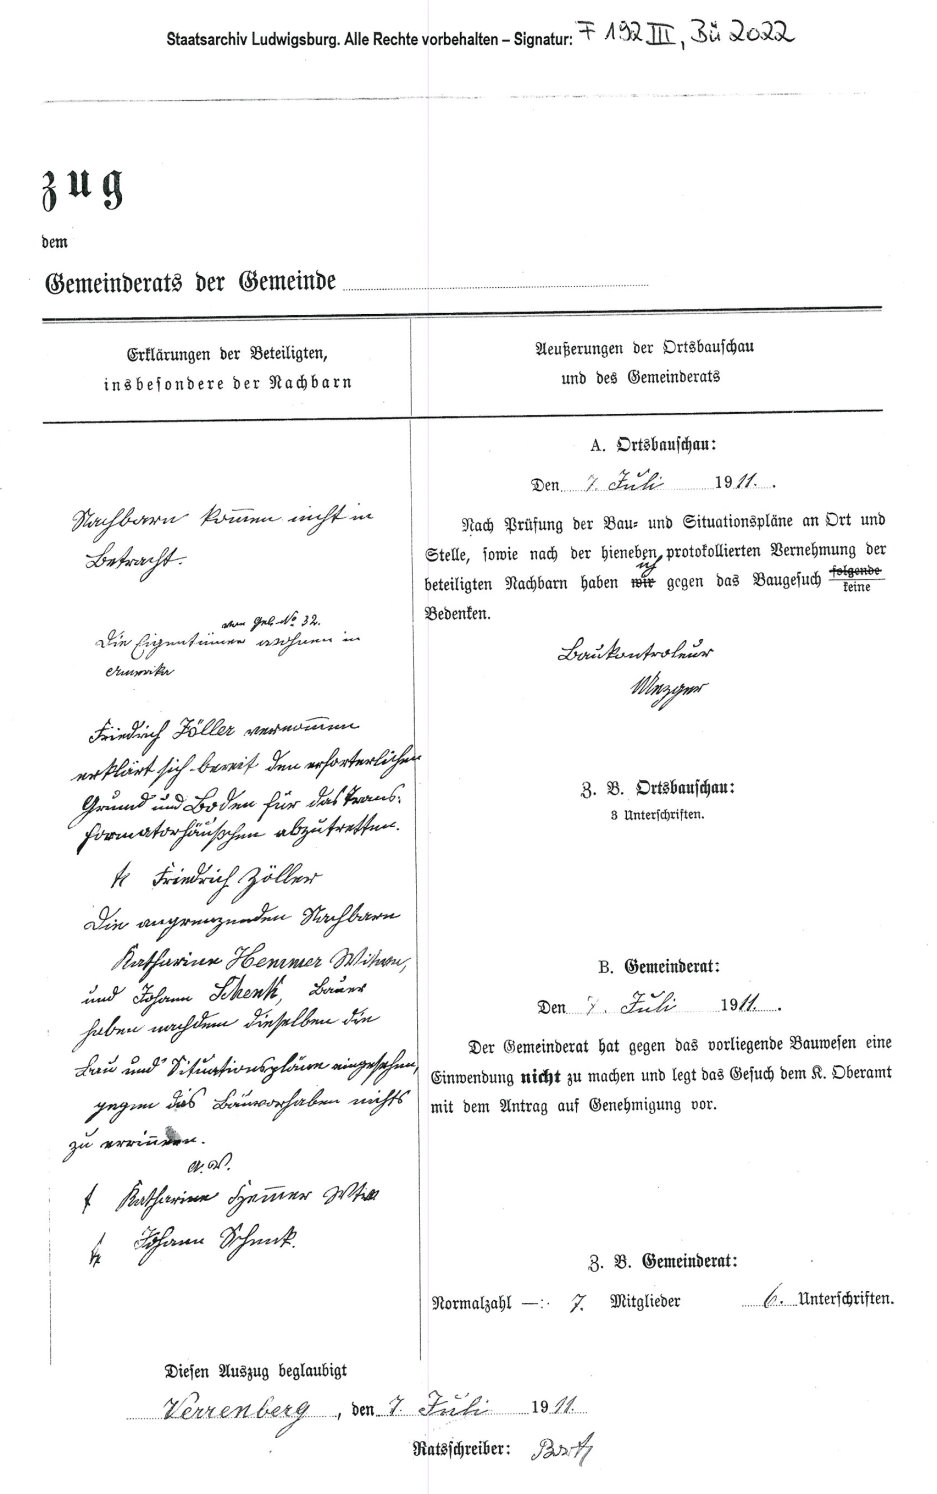 Staatsarchiv Ludwigsburg. Alle Rechte vorbehalten – Signatur: F 192 III, Bü 2022
zug
dem
Gemeinderats der Gemeinde
Erklärungen der Beteiligten,
insbesondere der Nachbarn
Nachbarn kommen nicht in
Betracht.
von Geb. No 32.
Die Eigentümer wohnen in
Amerika
Friedrich Zöller vernommen
erklärt sich bereit den erforterlichen
Grund und Boden für das Trans-
formatorhäuschen abzutretten.
Friedrich Zöller
Die angrenzenden Nachbarn
Katharine Hemmer Witwe,
und Johann Schenk, Bauer
haben nachdem dieselben die
Bau und Situationspläne eingesehen,
gegen das Bauvorhaben nichts
zu errinnern.
Katharine Hemmer Wtw
Johann Schenk.
Aeußerungen der Ortsbauschau
und des Gemeinderats
A. Ortsbauschau:
Den 7. Juli 1911.
Nach Prüfung der Bau- und Situationspläne an Ort und
Stelle, sowie nach der hieneben protokollierten Vernehmung der
ich
beteiligten Nachbarn haben wir gegen das Baugesuch folgende
keine
Bedenken.
Baukontroleur
Mezger
Z. B. Ortsbauschau:
3 Unterschriften.
B. Gemeinderat:
Den 7. Juli 1911.
Der Gemeinderat hat gegen das vorliegende Bauwesen eine
Einwendung nicht zu machen und legt das Gesuch dem K. Oberamt
mit dem Antrag auf Genehmigung vor.
Z. B. Gemeinderat:
Normalzahl —: 7. Mitglieder 6. Unterschriften.
Diesen Auszug beglaubigt
Verrenberg, den 7 Juli 1911
Ratsschreiber: